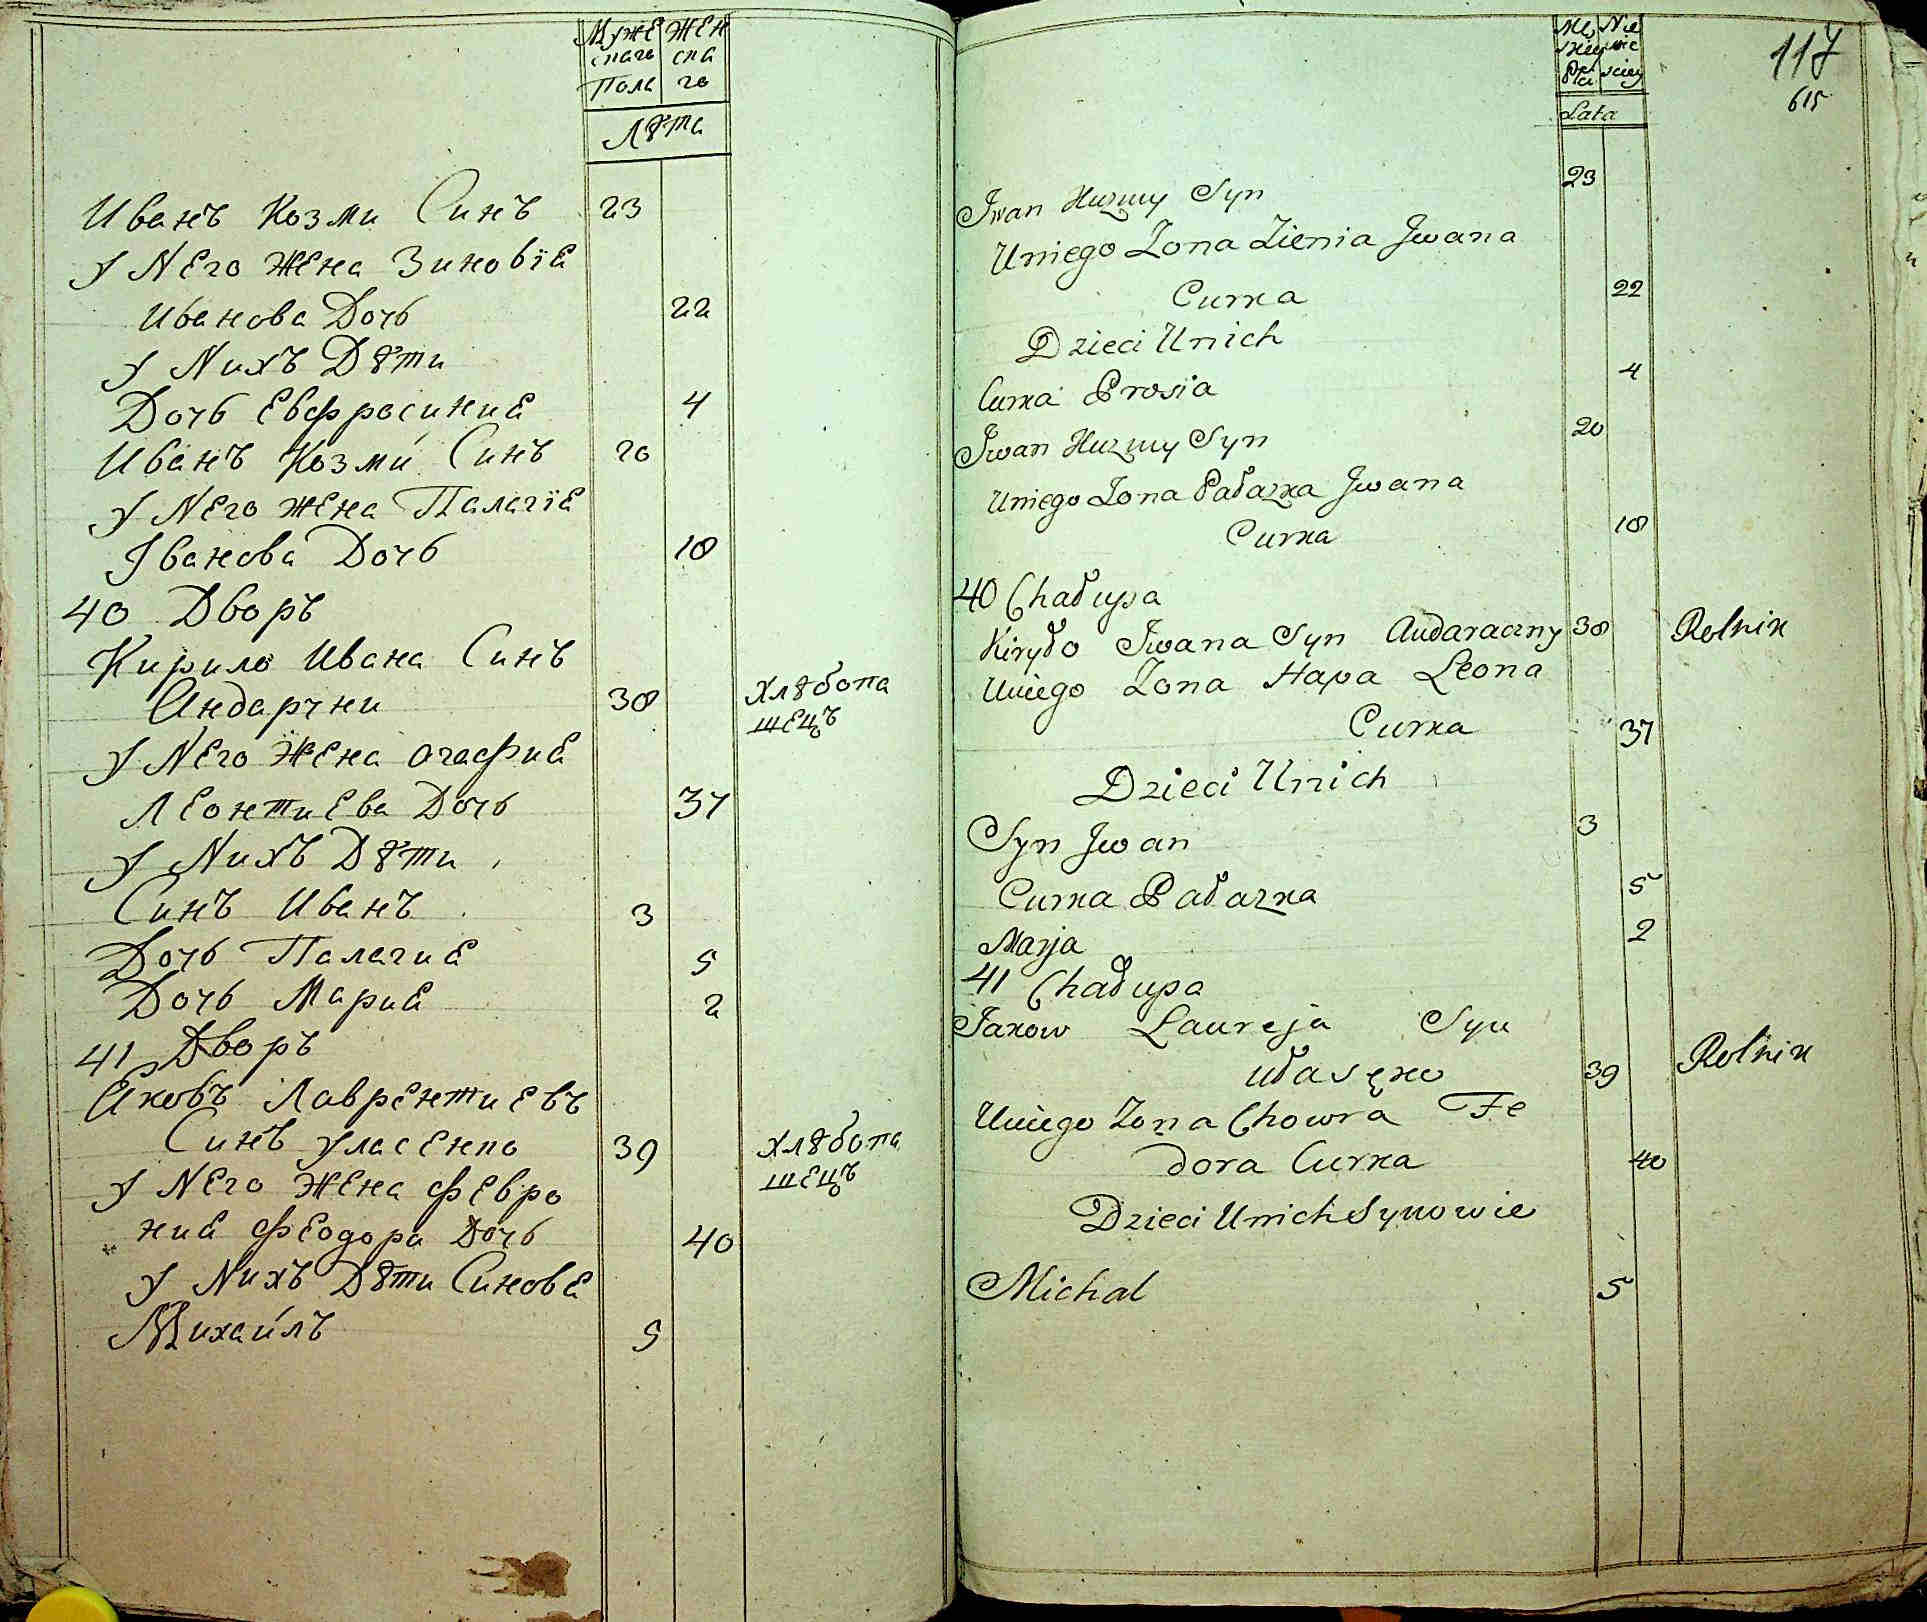 Мужескаго Пола
Женскаго
Лѣта
Иванъ Козми Синъ 23
У Него Жена Зиновіа
Иванова Дочь 22
У Нихъ Дѣти
Дочь Евфросиниа 4
Иванъ Козми Синъ 20
У Него жена Палагіа
Іванова Дочь 18
40 Дворъ
Кирило Ивана Синъ
Андарчни 38 хлѣбопашецъ
У Него Жена Огафиа
Леонтиева Дочь 37
У Нихъ Дѣти
Синъ Иванъ 3
Дочь Палагиа 5
Дочь Мариа 2
41 Дворъ
Яковъ Лаврентиевъ
Синъ Уласенко 39 хлѣбопашецъ
У Него Жена Февро
ниа Феодора Дочь 40
У Нихъ Дѣти Синове
Михаилъ 5
117
615
Lata
Iwan Kuzmy Syn 23
Uniego Zona Zienia Jwana
Curka 22
Dzieci Unich
Curka Prosia 4
Iwan Kuzmy Syn 20
Uniego Zona Pałazka Jwana
Curka 18
40 Chałupa
Kiryło Iwana Syn Audaraczny 38 Rolnik
Uniego Zona Hapa Leona
Curka 37
Dzieci Unich
Syn Jwan 3
Curka Pałazka 5
Marja 2
41 Chałupa
Jakow Laureja Syn
Ułasęko 39 Rolnik
Uniego Zona Chowra Fe
dora Curka 40
Dzieci Unich Synowie
Michal 5